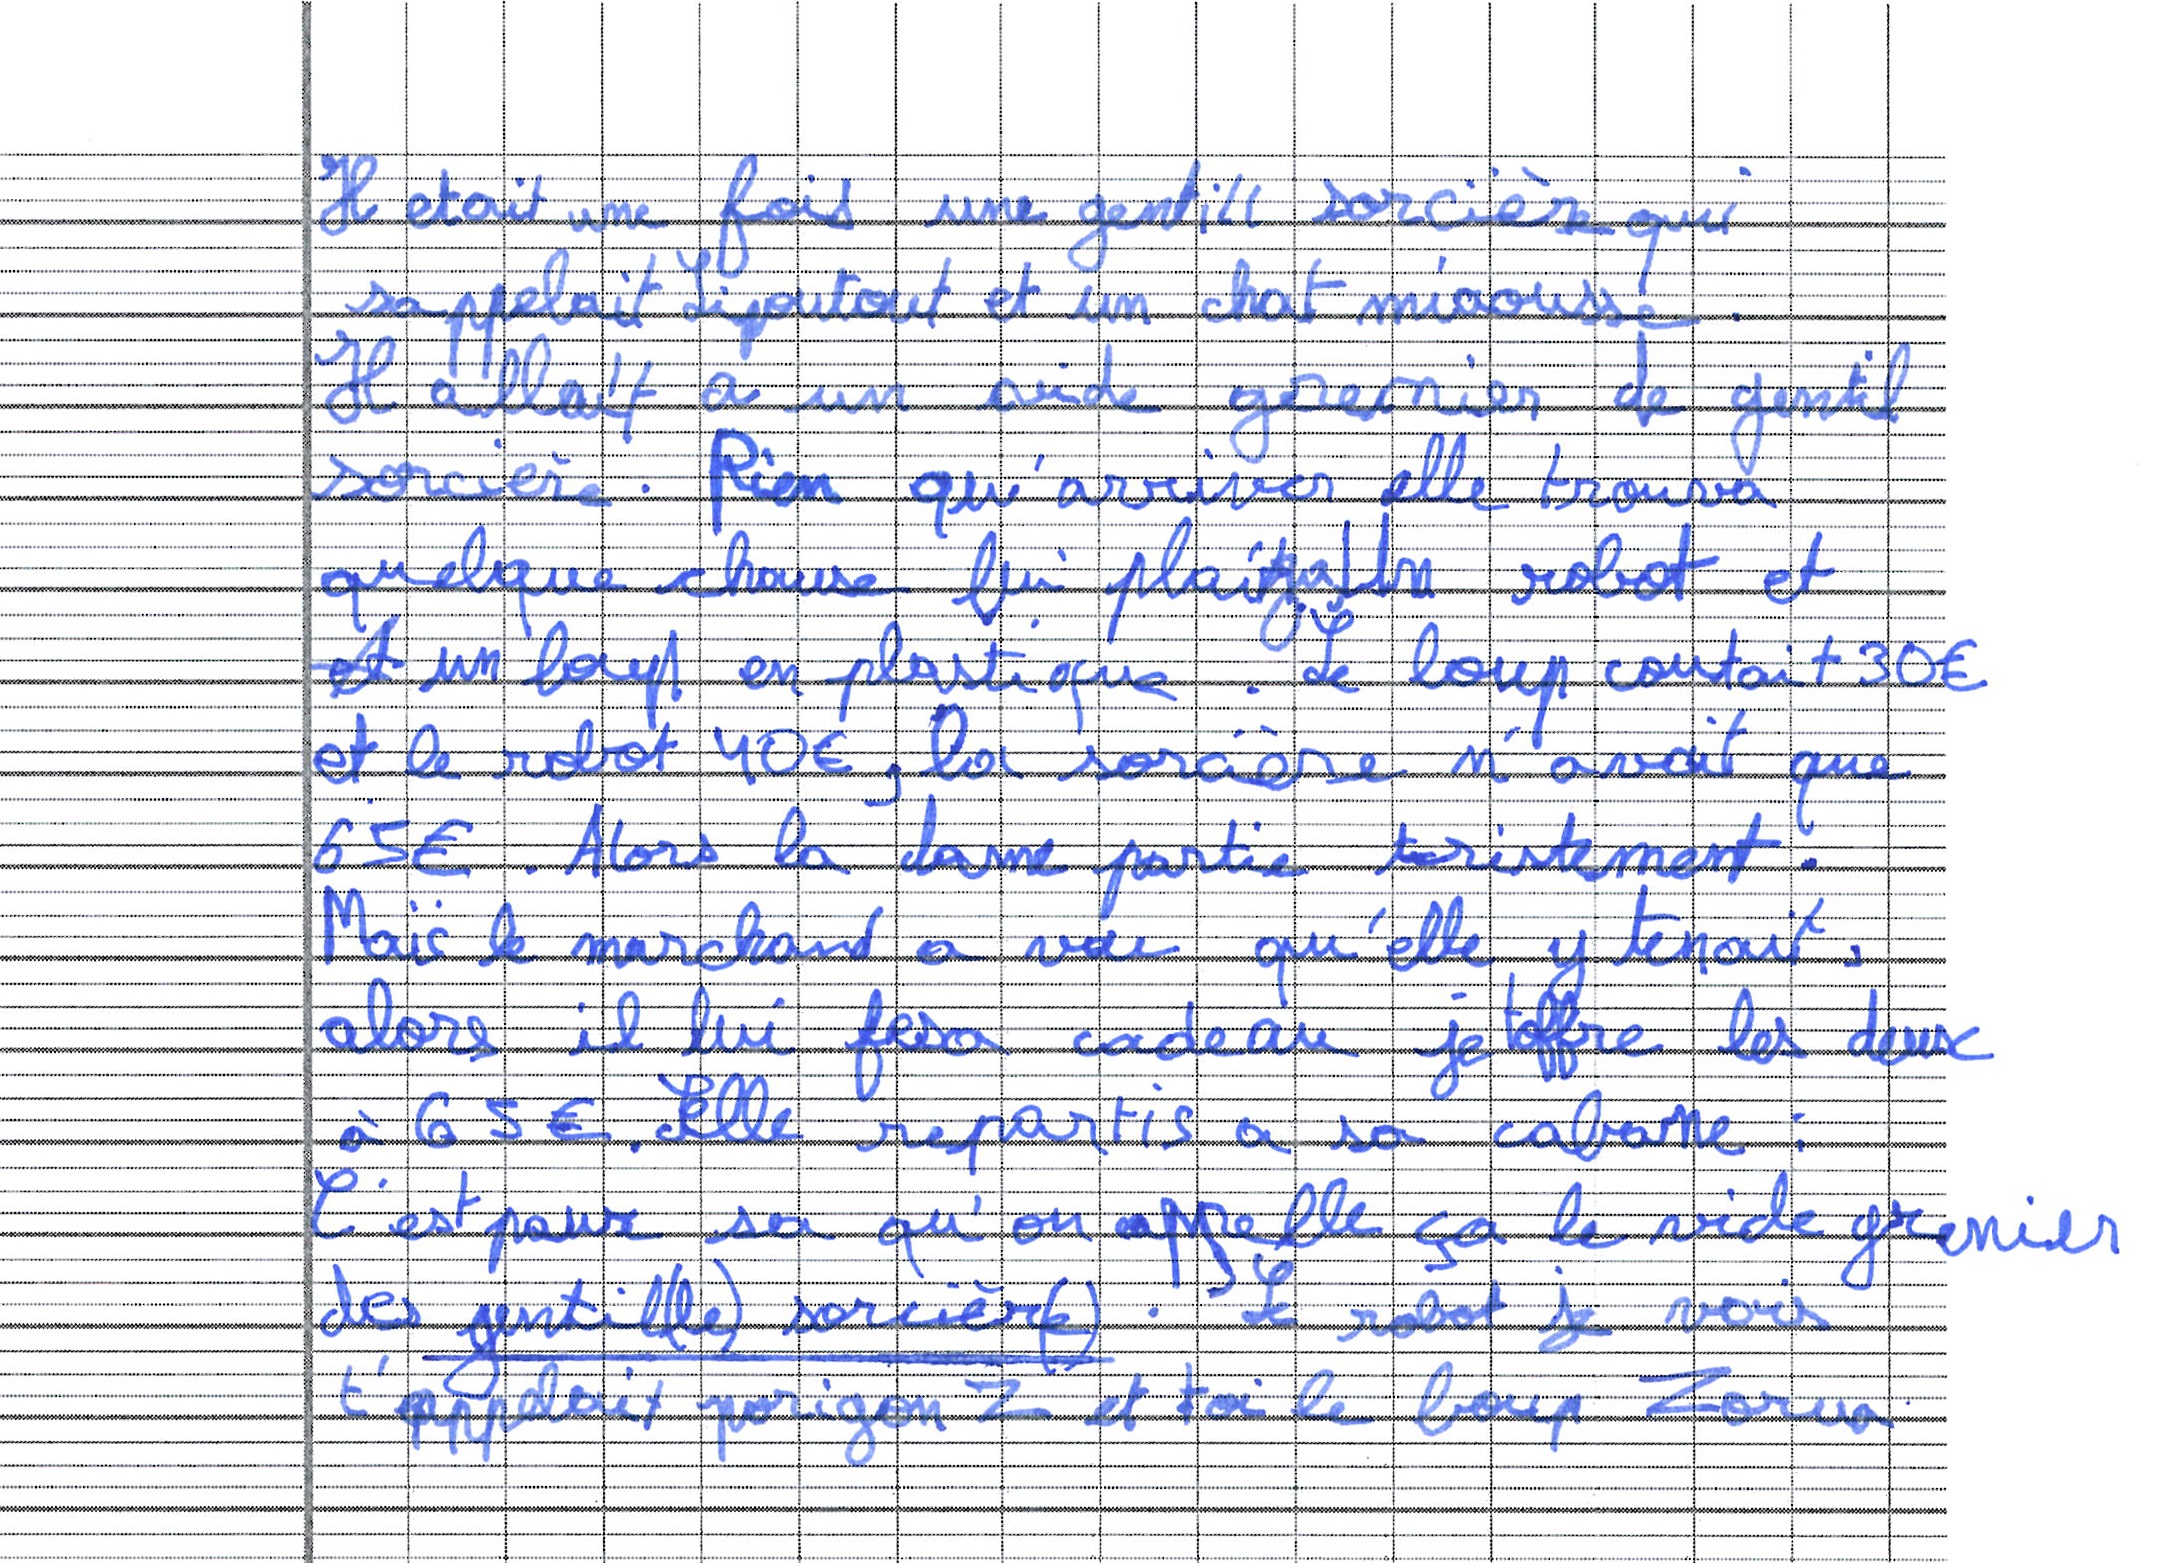 Il etait une fois une gentill sorcière qui
sappelait Lipoutout et un chat miaousse.
Il allait a un vide gerenier de gentil
sorcière. Rien qu'arriver elle trouva
quelque chouse lui plait Un robot et
et un loup en plastique. Le loup coutait 30€
et le robot 40€, la sorcière n'avait que
65€. Alors la dame partie teristement.
Mais le marchand a vue qu'elle y tenait.
alors il lui fesa cadeau je t'offre les deux
à 65€. Elle repartis a sa cabane :
C'est pour sa qu'on appelle ça le vide grenier
des gentil(le) sorcièr(e). Le robot je vais
t'appelait porigon Z et toi le loup Zorua